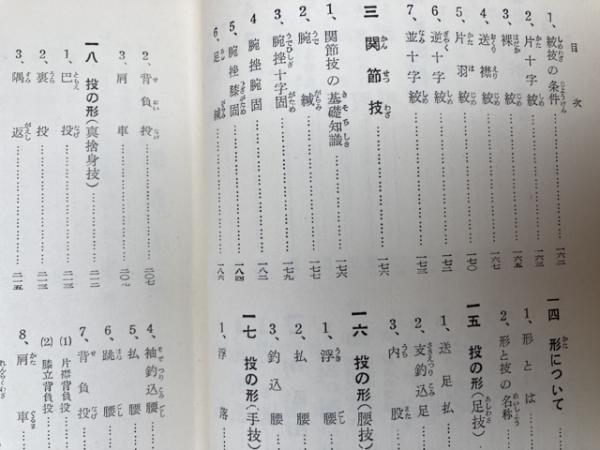 目次
1、絞技の条件……一六二
2、片十字絞……一六三
3、裸絞……一六五
4、送襟絞……一六七
5、片羽絞……一七〇
6、逆十字絞……一七二
7、並十字絞……一七三
三 関節技……一七六
1、関節技の基礎知識……一七六
2、腕緘……一七七
3、腕挫十字固……一七九
4 腕挫腕固……一八二
5、腕挫膝固……一八四
6、足緘……一八六
一四 形について
1、形とは
2、形と技の名称
一五 投の形(足技)
1、送足払
2、支釣込足
3、内股
一六 投の形(腰技)
1、浮腰
2、払腰
3、釣込腰
一七 投の形(手技)
1、浮落
2、背負投……二〇七
3、肩車……二〇九
一八 投の形(真捨身技)……二一二
1、巴投……二一三
2、裏投……二一三
3、隅返……二一五
4、袖釣込腰
5、払腰
6、跳腰
7、背負投
(1) 片襟背負投
(2) 膝立背負投
8、肩車
れんらくわざ